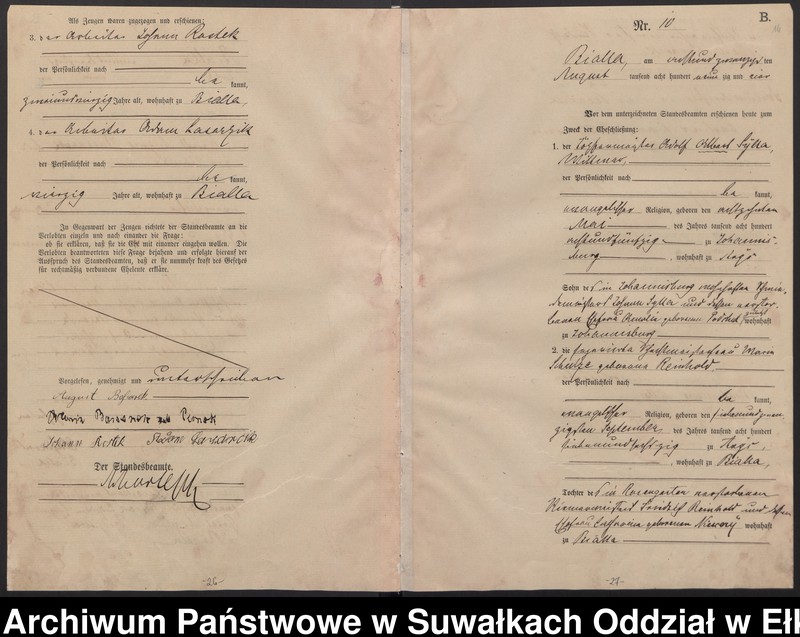 Als Zeugen waren zugezogen und erschienen:
3. der Arbeiter Johann Rostek
der Persönlichkeit nach
be kannt,
zweiundvierzig Jahre alt, wohnhaft zu Bialla,
4. der Arbeiter Adam Lasarzik
der Persönlichkeit nach
be kannt,
vierzig Jahre alt, wohnhaft zu Bialla
In Gegenwart der Zeugen richtete der Standesbeamte an die
Verlobten einzeln und nach einander die Frage:
ob sie erklären, daß sie die Ehe mit einander eingehen wollen. Die
Verlobten beantworteten diese Frage bejahend und erfolgte hierauf der
Ausspruch des Standesbeamten, daß er sie nunmehr kraft des Gesetzes
für rechtmäßig verbundene Eheleute erkläre.
Vorgelesen, genehmigt und unterschrieben
August
Johann
Der Standesbeamte.
-26-
B.
Nr. 10
Bialla, am achtundzwanzigsten
August tausend acht hundert neunzig und vier
Vor dem unterzeichneten Standesbeamten erschienen heute zum
Zweck der Eheschließung:
1. der Töpfermeister Adolf Albert Sylla,
Wittwer,
der Persönlichkeit nach
be kannt,
evangelischer Religion, geboren den achtzehnten
Mai des Jahres tausend acht hundert
achtundfünfzig zu Johannis-
burg, wohnhaft zu Lyck
Sohn des in Johannisburg
Johann Sylla und dessen verstor-
benen Ehefrau geborenen wohnhaft
zu Johannisburg
2. die Marie
Schulze geborene Reinhold
der Persönlichkeit nach
be kannt,
evangelischer Religion, geboren den siebenundzwan-
zigsten September des Jahres tausend acht hundert
siebenundsechzig zu
, wohnhaft zu Bialla,
Tochter des in Rosengarten verstorbenen
Friedrich Reinhold und dessen
Ehefrau geborenen wohnhaft
zu Bialla
-27-
Archiwum Państwowe w Suwałkach Oddział w Ełk